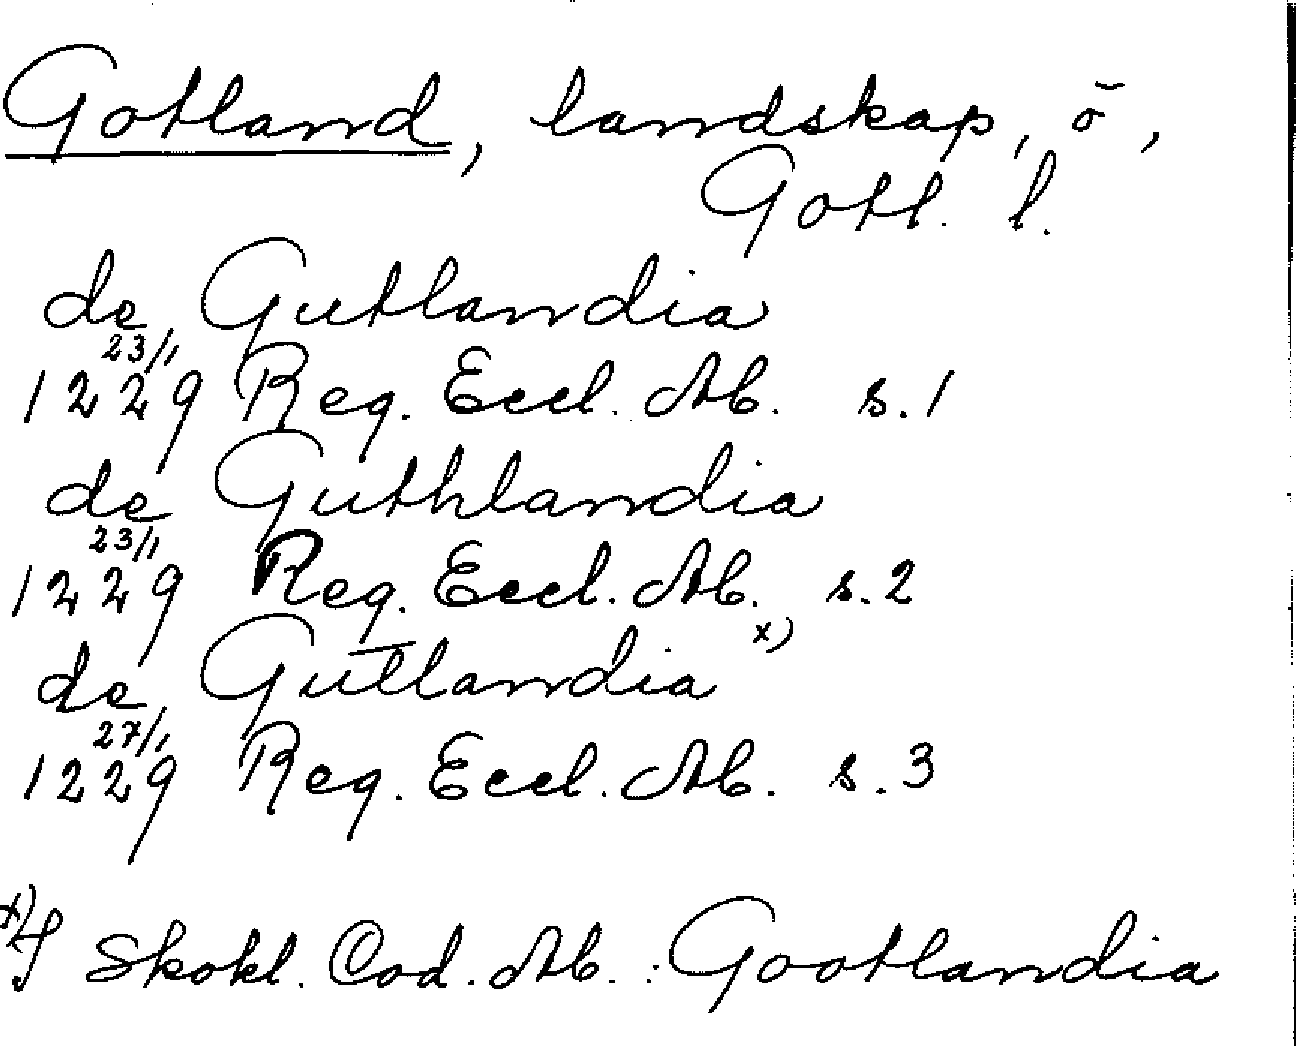 Gotland, landskap, ö,
Gotl. l.
de Gutlandia
23/1
1229 Reg. Eccl. Ab. s. 1
de Guthlandia
23/1
1229 Reg. Eccl. Ab. s. 2
de Gutlandia x)
27/1
1229 Reg. Eccl. Ab. s. 3
x) I Skokl. Cod. Ab. : Gootlandia